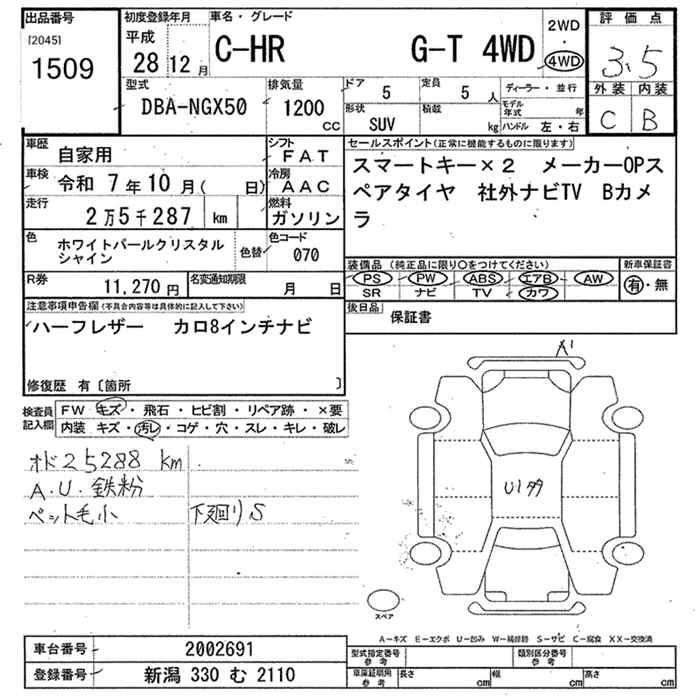 出品番号
[2045]
1509
初度登録年月
平成
28 12 月
車名・グレード
C-HR G-T 4WD
2WD
・
4WD
評価点
3.5
外装 内装
C B
型式
DBA-NGX50
排気量
1200
CC
ドア
5
定員
5 人
形状
SUV
積載
kg
ディーラー・並行
モデル年式 年
ハンドル 左・右
車歴
自家用
シフト
FAT
車検
令和 7年10月( 日)
冷房
AAC
走行
2万5千287 km
燃料
ガソリン
色
ホワイトパールクリスタル
シャイン
色替
色コード
070
R券
11,270 円
名変通知期限
月 日
セールスポイント(正常に機能するものに限ります)
スマートキー×2 メーカーOPス
ペアタイヤ 社外ナビTV Bカメ
ラ
装備品(純正品に限り○をつけてください)
PS PW ABS エアB AW
SR ナビ TV カワ
新車保証書
有・無
後日品
保証書
注意事項申告欄(不具合内容等は具体的に記入して下さい)
ハーフレザー カロ8インチナビ
修復歴 有〔箇所 〕
検査員
記入欄
FW キズ・飛石・ヒビ割・リペア跡・×要
内装 キズ・汚レ・コゲ・穴・スレ・キレ・破レ
オド25288 km
A.U.鉄粉
ペット毛小 下廻りS
A1
スペア
A－キズ E－エクボ U－凹み W－補修跡 S－サビ C－腐食 XX－交換済
車台番号
2002691
登録番号
新潟 330 む 2110
型式指定番号
参考
類別区分番号
参考
車庫証明用
参考
長さ cm
幅 cm
高さ cm